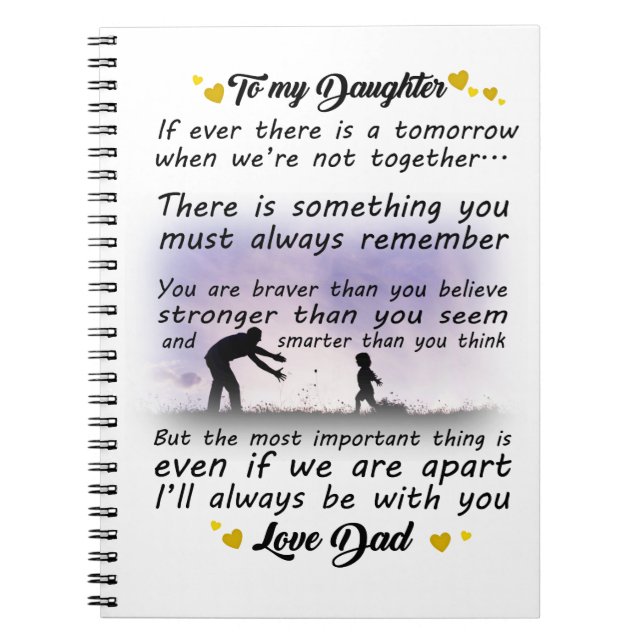 To my Daughter
If ever there is a tomorrow
when we're not together...
There is something you
must always remember
You are braver than you believe
stronger than you seem
and smarter than you think
But the most important thing is
even if we are apart
I'll always be with you
Love Dad